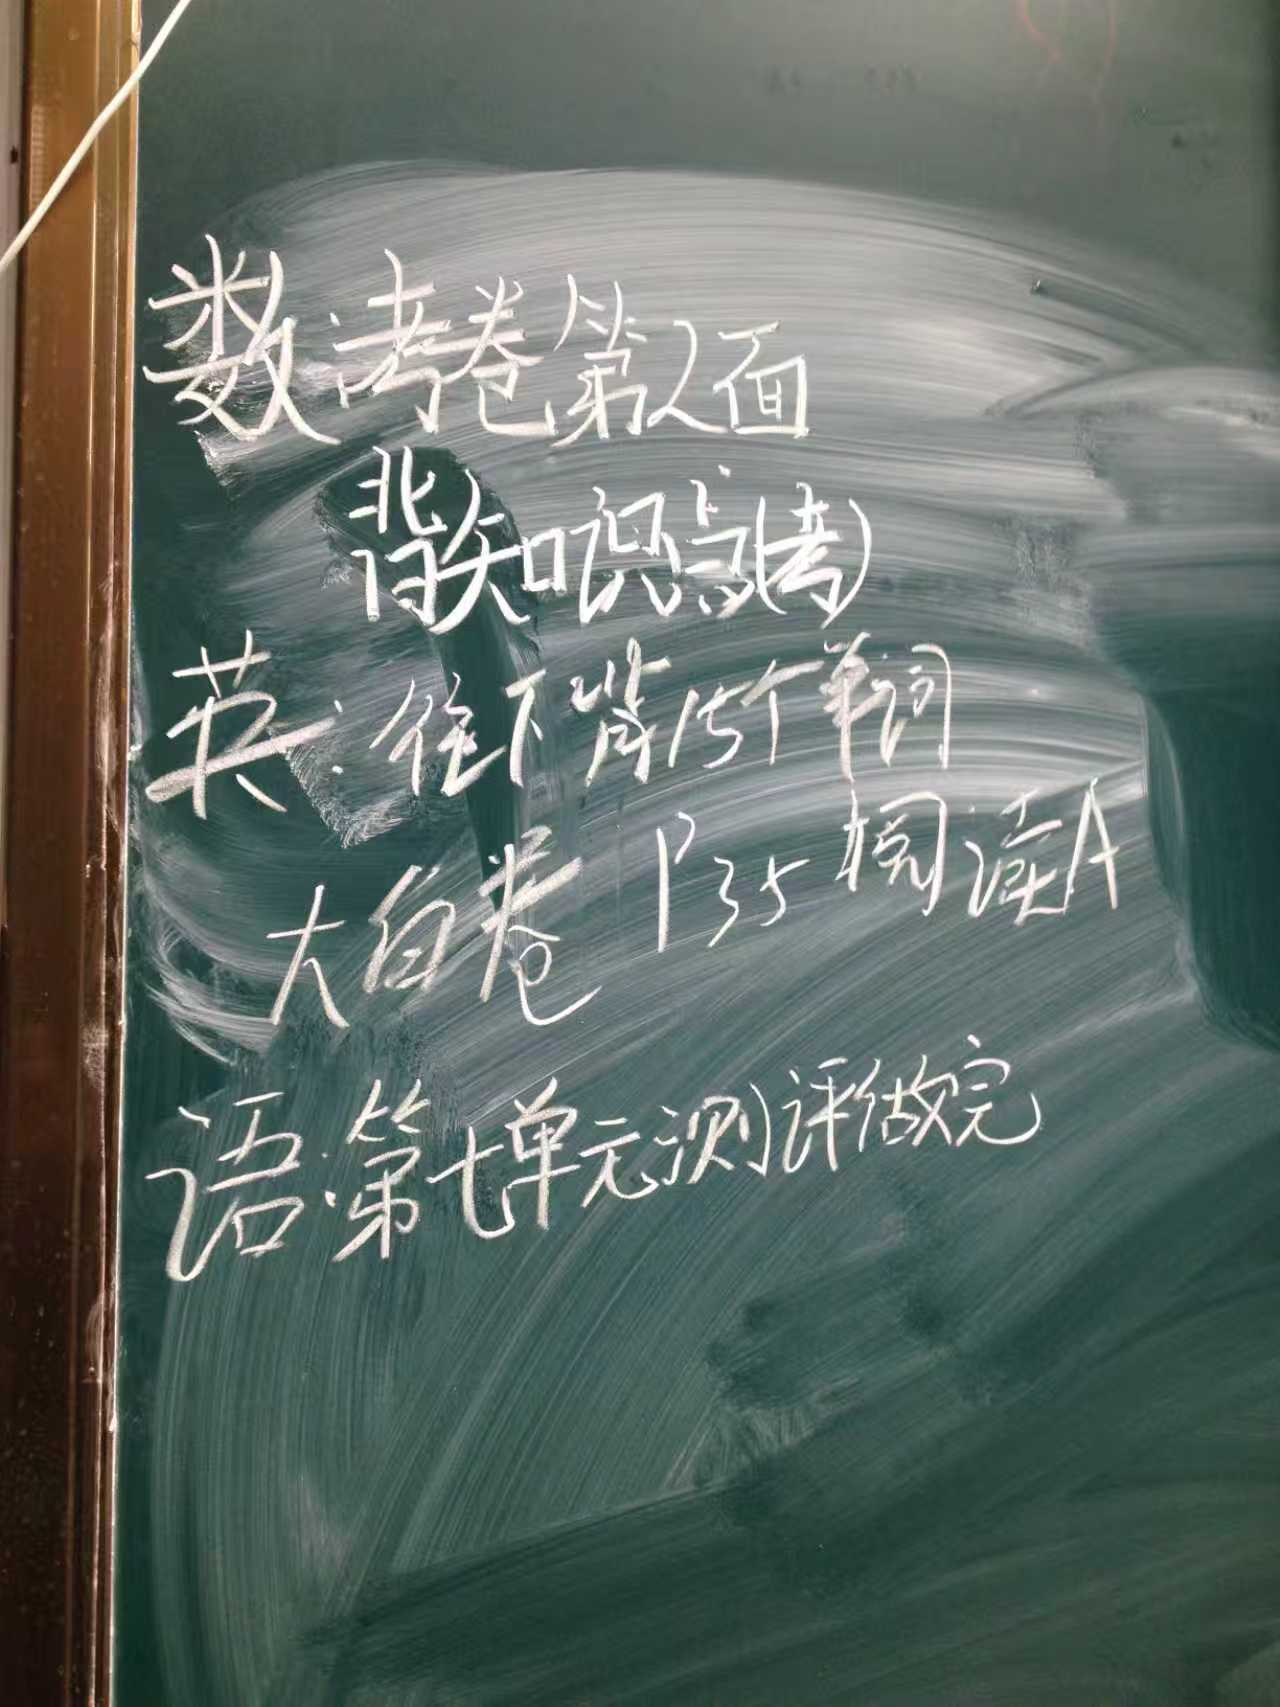 数:考卷第2面
背知识点(考)
英:往下背15个单词
大白卷 P35 阅读A
语:第七单元测评做完